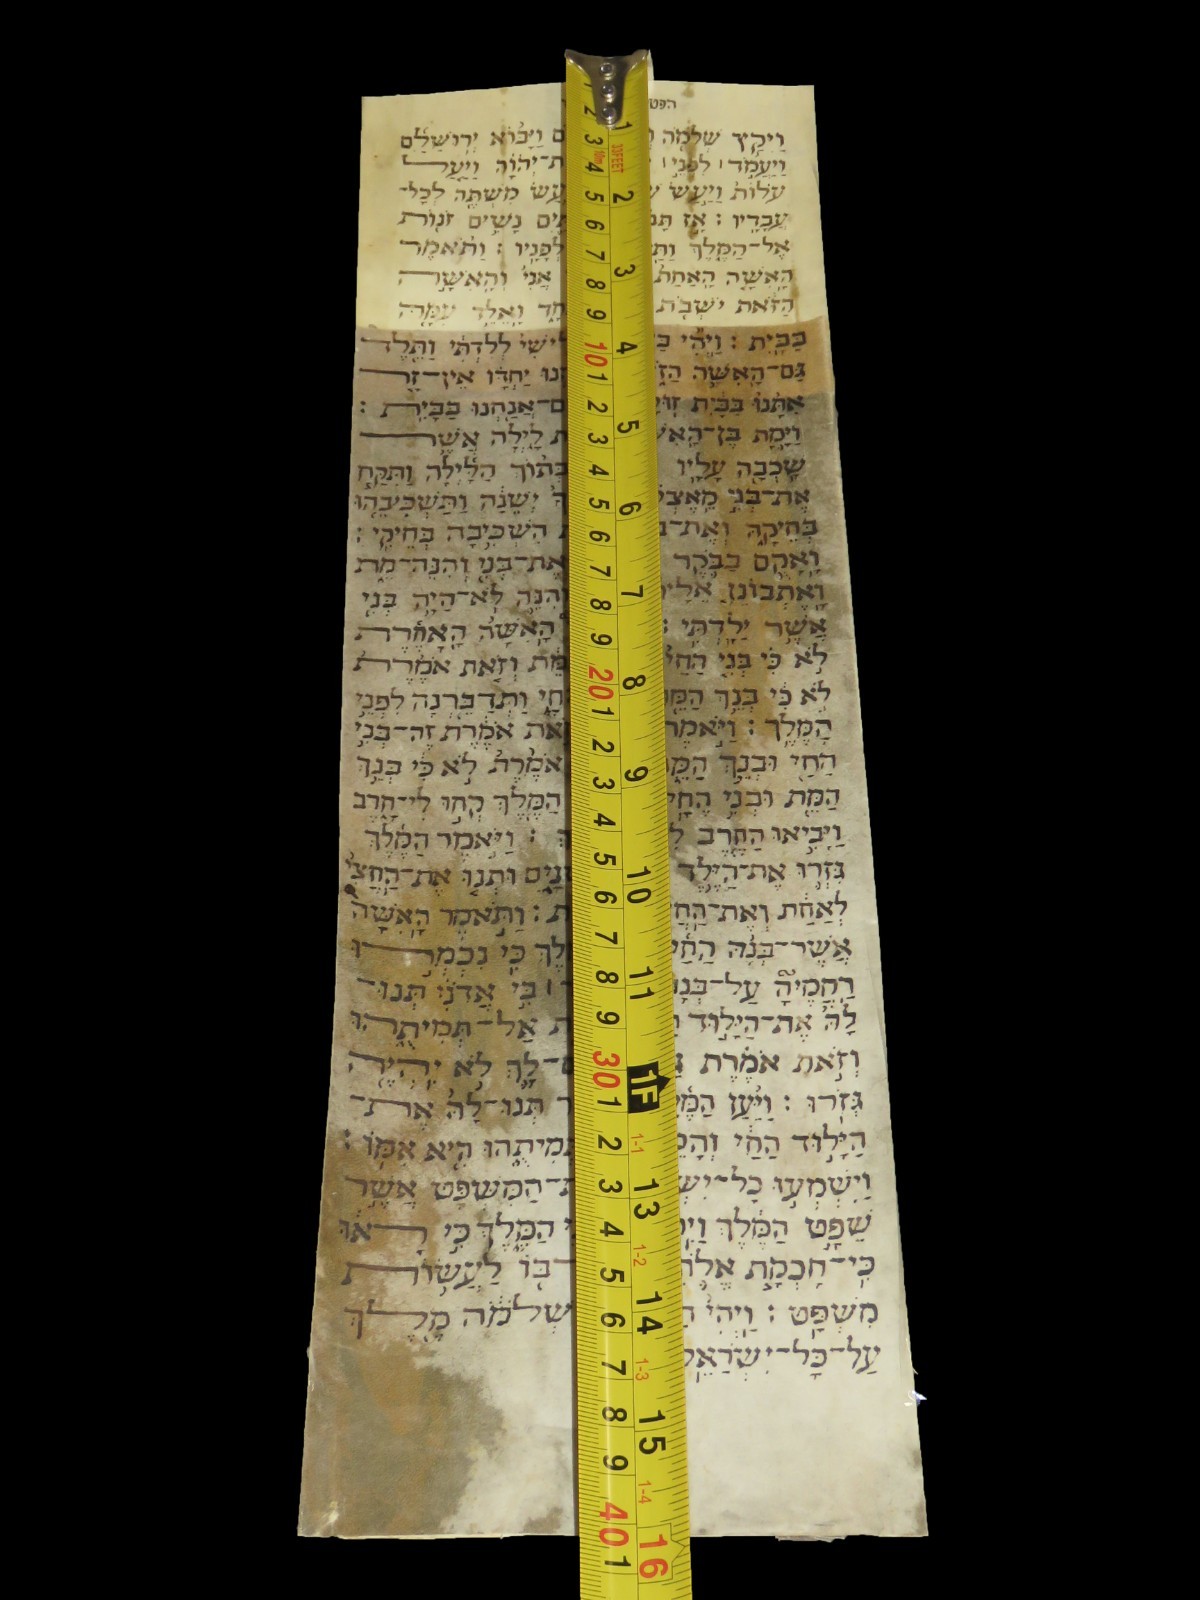 וַיִּקַץ שְׁלֹמֹה וַיָּבוֹא יְרוּשָׁלִַם
וַיַּעֲמֹד ׀ לִפְנֵי ׀ יְהוָה וַיַּעַל
עֹלוֹת וַיַּעַשׂ מִשְׁתֶּה לְכָל־
עֲבָדָיו : אָז נָשִׁים זֹנוֹת
אֶל־הַמֶּלֶךְ לְפָנָיו : וַתֹּאמֶר
הָאִשָּׁה הָאַחַת אֲנִי וְהָאִשָּׁה
הַזֹּאת יֹשְׁבֹת וָאֵלֵד עִמָּהּ
בַּבָּיִת : וַיְהִי לְלִדְתִּי וַתֵּלֶד
גַּם־הָאִשָּׁה יַחְדָּו אֵין־זָר
אִתָּנוּ בַּבַּיִת אֲנַחְנוּ בַּבָּיִת :
וַיָּמָת בֶּן־ לָיְלָה אֲשֶׁר
שָׁכְבָה עָלָיו בְּתוֹךְ הַלַּיְלָה וַתִּקַּח
אֶת־בְּנִי יְשֵׁנָה וַתַּשְׁכִּיבֵהוּ
בְּחֵיקָהּ וְאֶת־ הִשְׁכִּיבָה בְּחֵיקִי :
וָאָקֻם בַּבֹּקֶר אֶת־בְּנִי וְהִנֵּה־מֵת
וָאֶתְבּוֹנֵן וְהִנֵּה לֹא־הָיָה בְנִי
אֲשֶׁר יָלָדְתִּי : הָאִשָּׁה הָאַחֶרֶת
לֹא כִי בְּנִי הַחַי וְזֹאת אֹמֶרֶת
לֹא כִי בְּנֵךְ הַמֵּת וַתְּדַבֵּרְנָה לִפְנֵי
הַמֶּלֶךְ : וַיֹּאמֶר זֹאת אֹמֶרֶת זֶה־בְּנִי
הַחַי וּבְנֵךְ הַמֵּת אֹמֶרֶת לֹא כִי בְּנֵךְ
הַמֵּת וּבְנִי הֶחָי הַמֶּלֶךְ קְחוּ לִי־חָרֶב
וַיָּבִיאוּ הַחֶרֶב : וַיֹּאמֶר הַמֶּלֶךְ
גִּזְרוּ אֶת־הַיֶּלֶד וּתְנוּ אֶת־הַחֲצִי
לְאַחַת וְאֶת־ : וַתֹּאמֶר הָאִשָּׁה
אֲשֶׁר־בְּנָהּ הַחַי כִּי נִכְמְרוּ
רַחֲמֶיהָ עַל־בְּנָהּ ׀ בִּי אֲדֹנִי תְּנוּ־
לָהּ אֶת־הַיָּלוּד אַל־תְּמִיתֻהוּ
וְזֹאת אֹמֶרֶת לָךְ לֹא יִהְיֶה
גְּזֹרוּ : וַיַּעַן הַמֶּלֶךְ תְּנוּ־לָהּ אֶת־
הַיָּלוּד הַחַי תְמִיתֻהוּ הִיא אִמּוֹ :
וַיִּשְׁמְעוּ כָל־ הַמִּשְׁפָּט אֲשֶׁר
שָׁפַט הַמֶּלֶךְ הַמֶּלֶךְ כִּי רָאוּ
כִּי־חָכְמַת בּוֹ לַעֲשׂוֹת
מִשְׁפָּט : וַיְהִי שְׁלֹמֹה מֶלֶךְ
עַל־כָּל־יִשְׂרָאֵל
33FEET
10m
1 2 3 4 5 6 7 8 9 10 11 1F 13 14 15 16
1-1 1-2 1-3 1-4
2 3 4 5 6 7 8 9 10 1 2 3 4 5 6 7 8 9 20 1 2 3 4 5 6 7 8 9 30 1 2 3 4 5 6 7 8 9 40 1